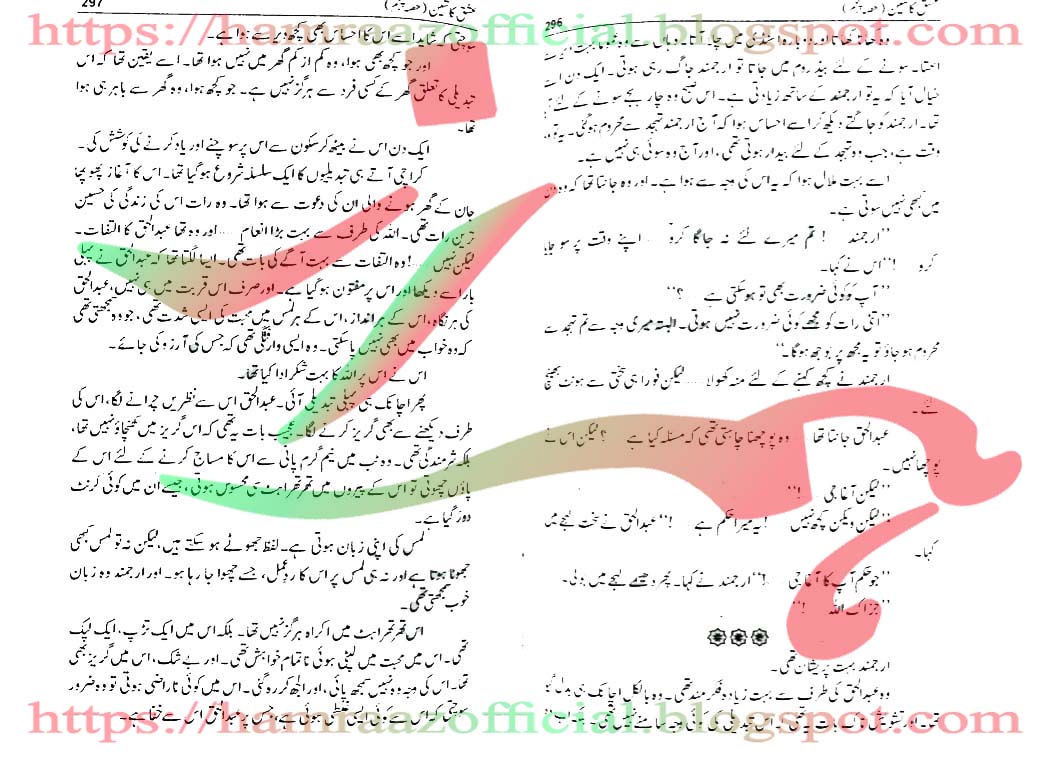 عشق کا شین (حصہ پنجم)
296
https://hamraazofficial.blogspot.com
اٹھتا۔ سونے کے لئے بیڈ روم میں جاتا تو ارجمند جاگ رہی ہوتی۔ ایک دن اسے
خیال آیا کہ یہ تو ارجمند کے ساتھ زیادتی ہے۔ اس صبح وہ چار بجے سونے کے لئے
تھا۔ ارجمند کو جاگتے دیکھ کر اسے احساس ہوا کہ آج ارجمند تہجد سے محروم ہو گئی۔ یہ تو
وقت ہے، جب وہ تہجد کے لئے بیدار ہوتی تھی، اور آج وہ سوئی ہی نہیں ہے۔
اسے بہت ملال ہوا کہ یہ اس کی وجہ سے ہوا ہے۔ اور وہ جانتا تھا کہ وہ دن
میں کبھی نہیں سوتی ہے۔
''ارجمند ! تم میرے لئے نہ جاگا کرو .... اپنے وقت پر سو جایا
کرو !'' اس نے کہا۔
''آپ کو کوئی ضرورت بھی تو ہو سکتی ہے ؟''
''اتنی رات کو مجھے کوئی ضرورت نہیں ہوتی۔ البتہ میری وجہ سے تم تہجد سے
محروم ہو جاؤ تو یہ مجھ پر بوجھ ہوگا۔''
ارجمند نے کچھ کہنے کے لئے منہ کھولا .... لیکن فوراً ہی سختی سے ہونٹ بھینچ
لئے۔
عبدالحق جانتا تھا وہ پوچھنا چاہتی تھی کہ مسئلہ کیا ہے ؟ لیکن اس نے
پوچھا نہیں۔
''لیکن آغا جی .... !''
''لیکن ویکن کچھ نہیں !یہ میرا حکم ہے !'' عبدالحق نے سخت لہجے میں
کہا۔
''جو حکم آپ کا آغا جی .... !'' ارجمند نے کہا۔ پھر دھیمے لہجے میں بولی۔
''جزاک اللہ !''
ارجمند بہت پریشان تھی۔
وہ عبدالحق کی طرف سے بہت زیادہ فکر مند تھی۔ وہ بالکل اچانک ہی بدل گیا
عشق کا شین (حصہ پنجم)
297
اور جو کچھ بھی ہوا، وہ کم از کم گھر میں نہیں ہوا تھا۔ اسے یقین تھا کہ اس
تبدیلی کا تعلق گھر کے کسی فرد سے ہرگز نہیں ہے۔ جو کچھ ہوا، وہ گھر سے باہر ہی ہوا
تھا۔
ایک دن اس نے بیٹھ کر سکون سے اس پر سوچنے اور یاد کرنے کی کوشش کی۔
کراچی آتے ہی تبدیلیوں کا ایک سلسلہ شروع ہو گیا تھا۔ اس کا آغاز پھوپھا
جان کے گھر ہونے والی ان کی دعوت سے ہوا تھا۔ وہ رات اس کی زندگی کی حسین
ترین رات تھی۔ اللہ کی طرف سے بہت بڑا انعام .... اور وہ تھا عبدالحق کا التفات۔
لیکن نہیں ....! وہ التفات سے بہت آگے کی بات تھی۔ ایسا لگتا تھا کہ عبدالحق نے پہلی
بار اسے دیکھا اور اس پر مفتون ہو گیا ہے۔ اور صرف اس قربت میں ہی نہیں، عبدالحق
کی ہر نگاہ، اس کے ہر انداز، اس کے ہر لمس میں محبت کی ایسی شدت تھی، جو وہ سمجھتی تھی
کہ وہ خواب میں بھی نہیں پا سکتی۔ وہ ایسی وارفتگی تھی کہ جس کی آرزو کی جائے۔
اس نے اس پر اللہ کا بہت شکر ادا کیا تھا۔
پھر اچانک ہی پہلی تبدیلی آئی۔ عبدالحق اس سے نظریں چرانے لگا، اس کی
طرف دیکھنے سے بھی گریز کرنے لگا۔ عجیب بات یہ تھی کہ اس گریز میں کھنچاؤ نہیں تھا،
بلکہ شرمندگی تھی۔ وہ ٹب میں نیم گرم پانی سے اس کا مساج کرنے کے لئے اس کے
پاؤں چھوتی تو اس کے پیروں میں تھرتھراہٹ سی محسوس ہوتی، جیسے ان میں کوئی کرنٹ
دوڑ گیا ہے۔
لمس کی اپنی زبان ہوتی ہے۔ لفظ جھوٹے ہو سکتے ہیں، لیکن نہ تو لمس کبھی
جھوٹا ہوتا ہے اور نہ ہی لمس پر اس کا ردِعمل، جسے چھوا جا رہا ہو۔ اور ارجمند وہ زبان
خوب سمجھتی تھی۔
اس تھرتھراہٹ میں اکراہ ہرگز نہیں تھا۔ بلکہ اس میں ایک تڑپ، ایک لپک
تھی۔ اس میں محبت میں لپٹی ہوئی ناتمام خواہش تھی۔ اور بے شک، اس میں گریز بھی
تھا۔ اس کی وجہ وہ نہیں سمجھ پائی، اور الجھ کر رہ گئی۔ اس میں کوئی ناراضی ہوتی تو وہ ضرور
سوچتی کہ اس سے کوئی ایسی غلطی ہوئی ہے، جس پر عبدالحق اس سے خفا ہے۔
https://hamraazofficial.blogspot.com